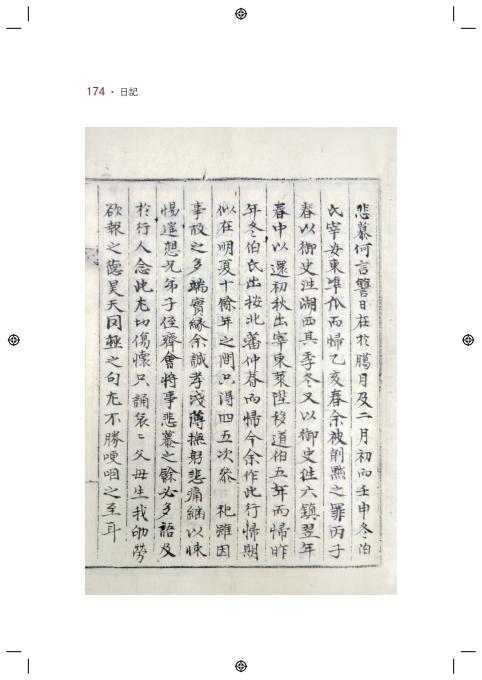 174 · 日記
悲慕何言讐日在於臘月及二月初而壬申冬伯
氏宰安東準瓜而歸乙亥春余被削黜之罪丙子
春以御史徃湖西其季冬又以御史徃六鎭翌年
春中以還初秋出宰東萊陞移道伯五年而歸昨
年冬伯氏出按北藩仲春而歸今余作此行歸期
似在明夏十餘年之間只得四五次參祀雖因
事故之多端實緣余誠孝淺薄撫躬悲痛繼以悚
惕遙想兄弟子侄齊會將事悲慕之餘必多語及
於行人念此尤切傷懷只誦哀〻父母生我劬勞
欲報之德昊天罔極之句尤不勝哽咽之至耳